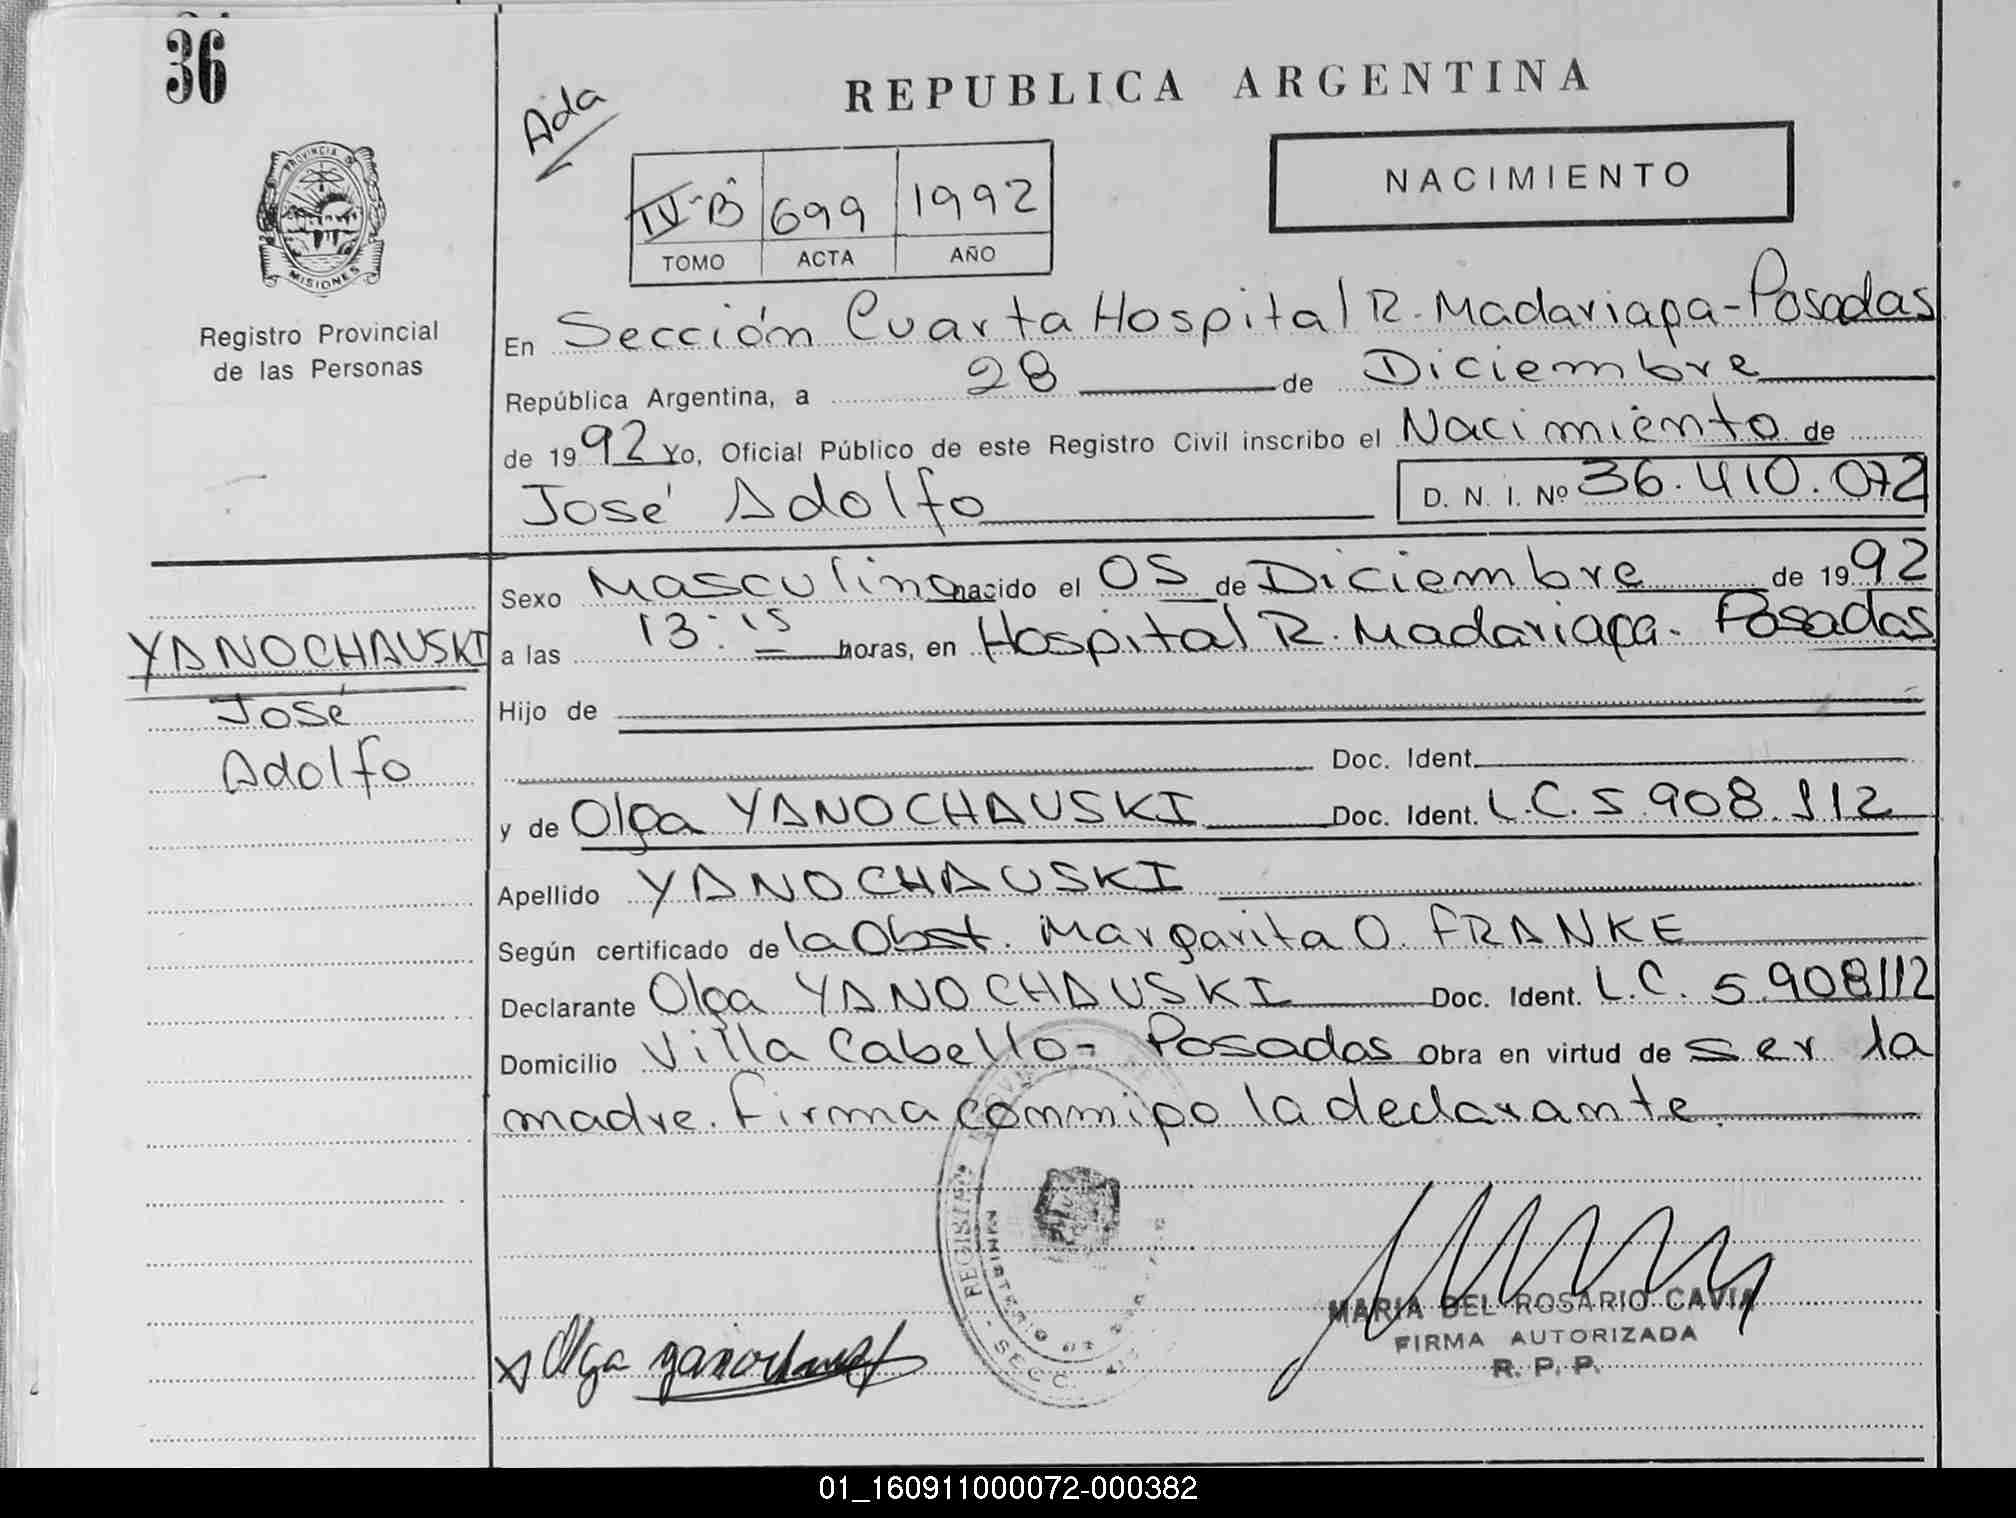 36
REPUBLICA ARGENTINA
Ada
NACIMIENTO
IV-B 699 1992
TOMO ACTA AÑO
PROVINCIA DE
MISIONES
Registro Provincial
de las Personas
En Sección Cuarta Hospital R. Madariaga - Posadas
República Argentina, a 28 de Diciembre
de 1992 Yo, Oficial Público de este Registro Civil inscribo el Nacimiento de
José Adolfo D. N. I. Nº 36.410.072
Sexo Masculino nacido el 05 de Diciembre de 1992
a las 13:15 horas, en Hospital R. Madariaga - Posadas
YANOCHAUSKI
José
Adolfo
Hijo de
Doc. Ident.
y de Olga YANOCHAUSKI Doc. Ident. L.C. 5.908.112
Apellido YANOCHAUSKI
Según certificado de la Obst. Margarita O. FRANKE
Declarante Olga YANOCHAUSKI Doc. Ident. L.C. 5.908112
Domicilio Villa Cabello - Posadas Obra en virtud de ser la
madre. Firma conmmigo la declarante.
REGISTRO
MINISTERIO DE
SECC.
MARIA DEL ROSARIO CAVIA
FIRMA AUTORIZADA
R. P. P.
x Olga
01_160911000072-000382